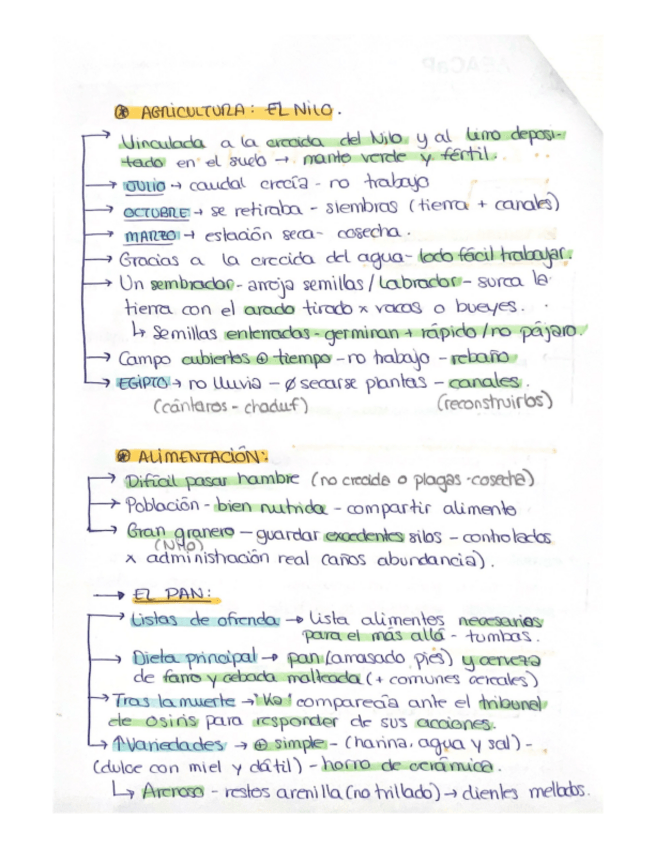 ⊛ AGRICULTURA: EL NILO.
Vinculada a la crecida del Nilo y al limo deposi-
tado en el suelo → manto verde y fértil.
JULIO → caudal crecía - no trabajo
OCTUBRE → se retiraba - siembras (tierra + canales)
MARZO → estación seca - cosecha.
Gracias a la crecida del agua - lodo fácil trabajar.
Un sembrador - arroja semillas / Labrador - surca la
tierra con el arado tirado x vacas o bueyes.
↳ Semillas enterradas - germinan + rápido / no pájaro.
Campo cubiertos ⊕ tiempo - no trabajo - rebaño
EGIPTO → no lluvia - ∅ secarse plantas - canales.
(cántaros - chaduf) (reconstruirlos)
⊛ ALIMENTACIÓN:
Difícil pasar hambre (no crecida o plagas - cosecha)
Población - bien nutrida - compartir alimento
Gran granero - guardar excedentes silos - controlados
(Nilo)
x administración real (años abundancia).
→ EL PAN:
Listas de ofrenda → lista alimentos necesarios
para el más allá - tumbas.
Dieta principal → pan (amasado pies) y cerveza
de farro y cebada malteada (+ comunes cereales)
Tras la muerte → 'Ka' comparecía ante el tribunal
de osiris para responder de sus acciones.
↑Variedades → ⊕ simple - (harina, agua y sal) -
(dulce con miel y dátil) - horno de cerámica.
↳ Arenoso - restos arenilla (no trillado) → dientes mellados.